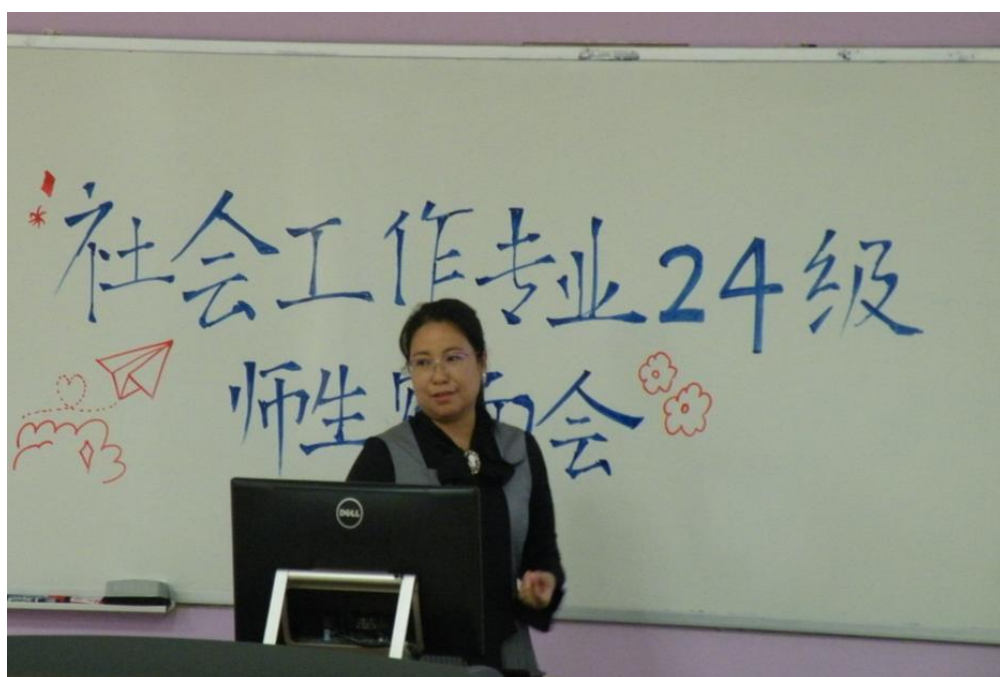 社会工作专业24级
师生 会
DELL